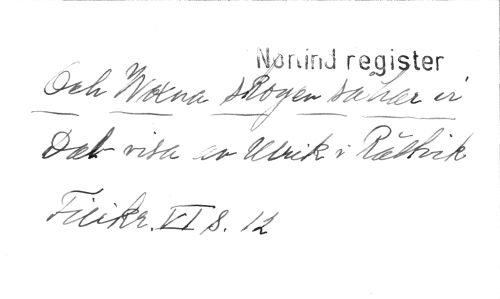 Norlind register
Och Woxna skogen så har vi
Dal visa av Ulrik i Rättvik
Filikr. VI s. 12